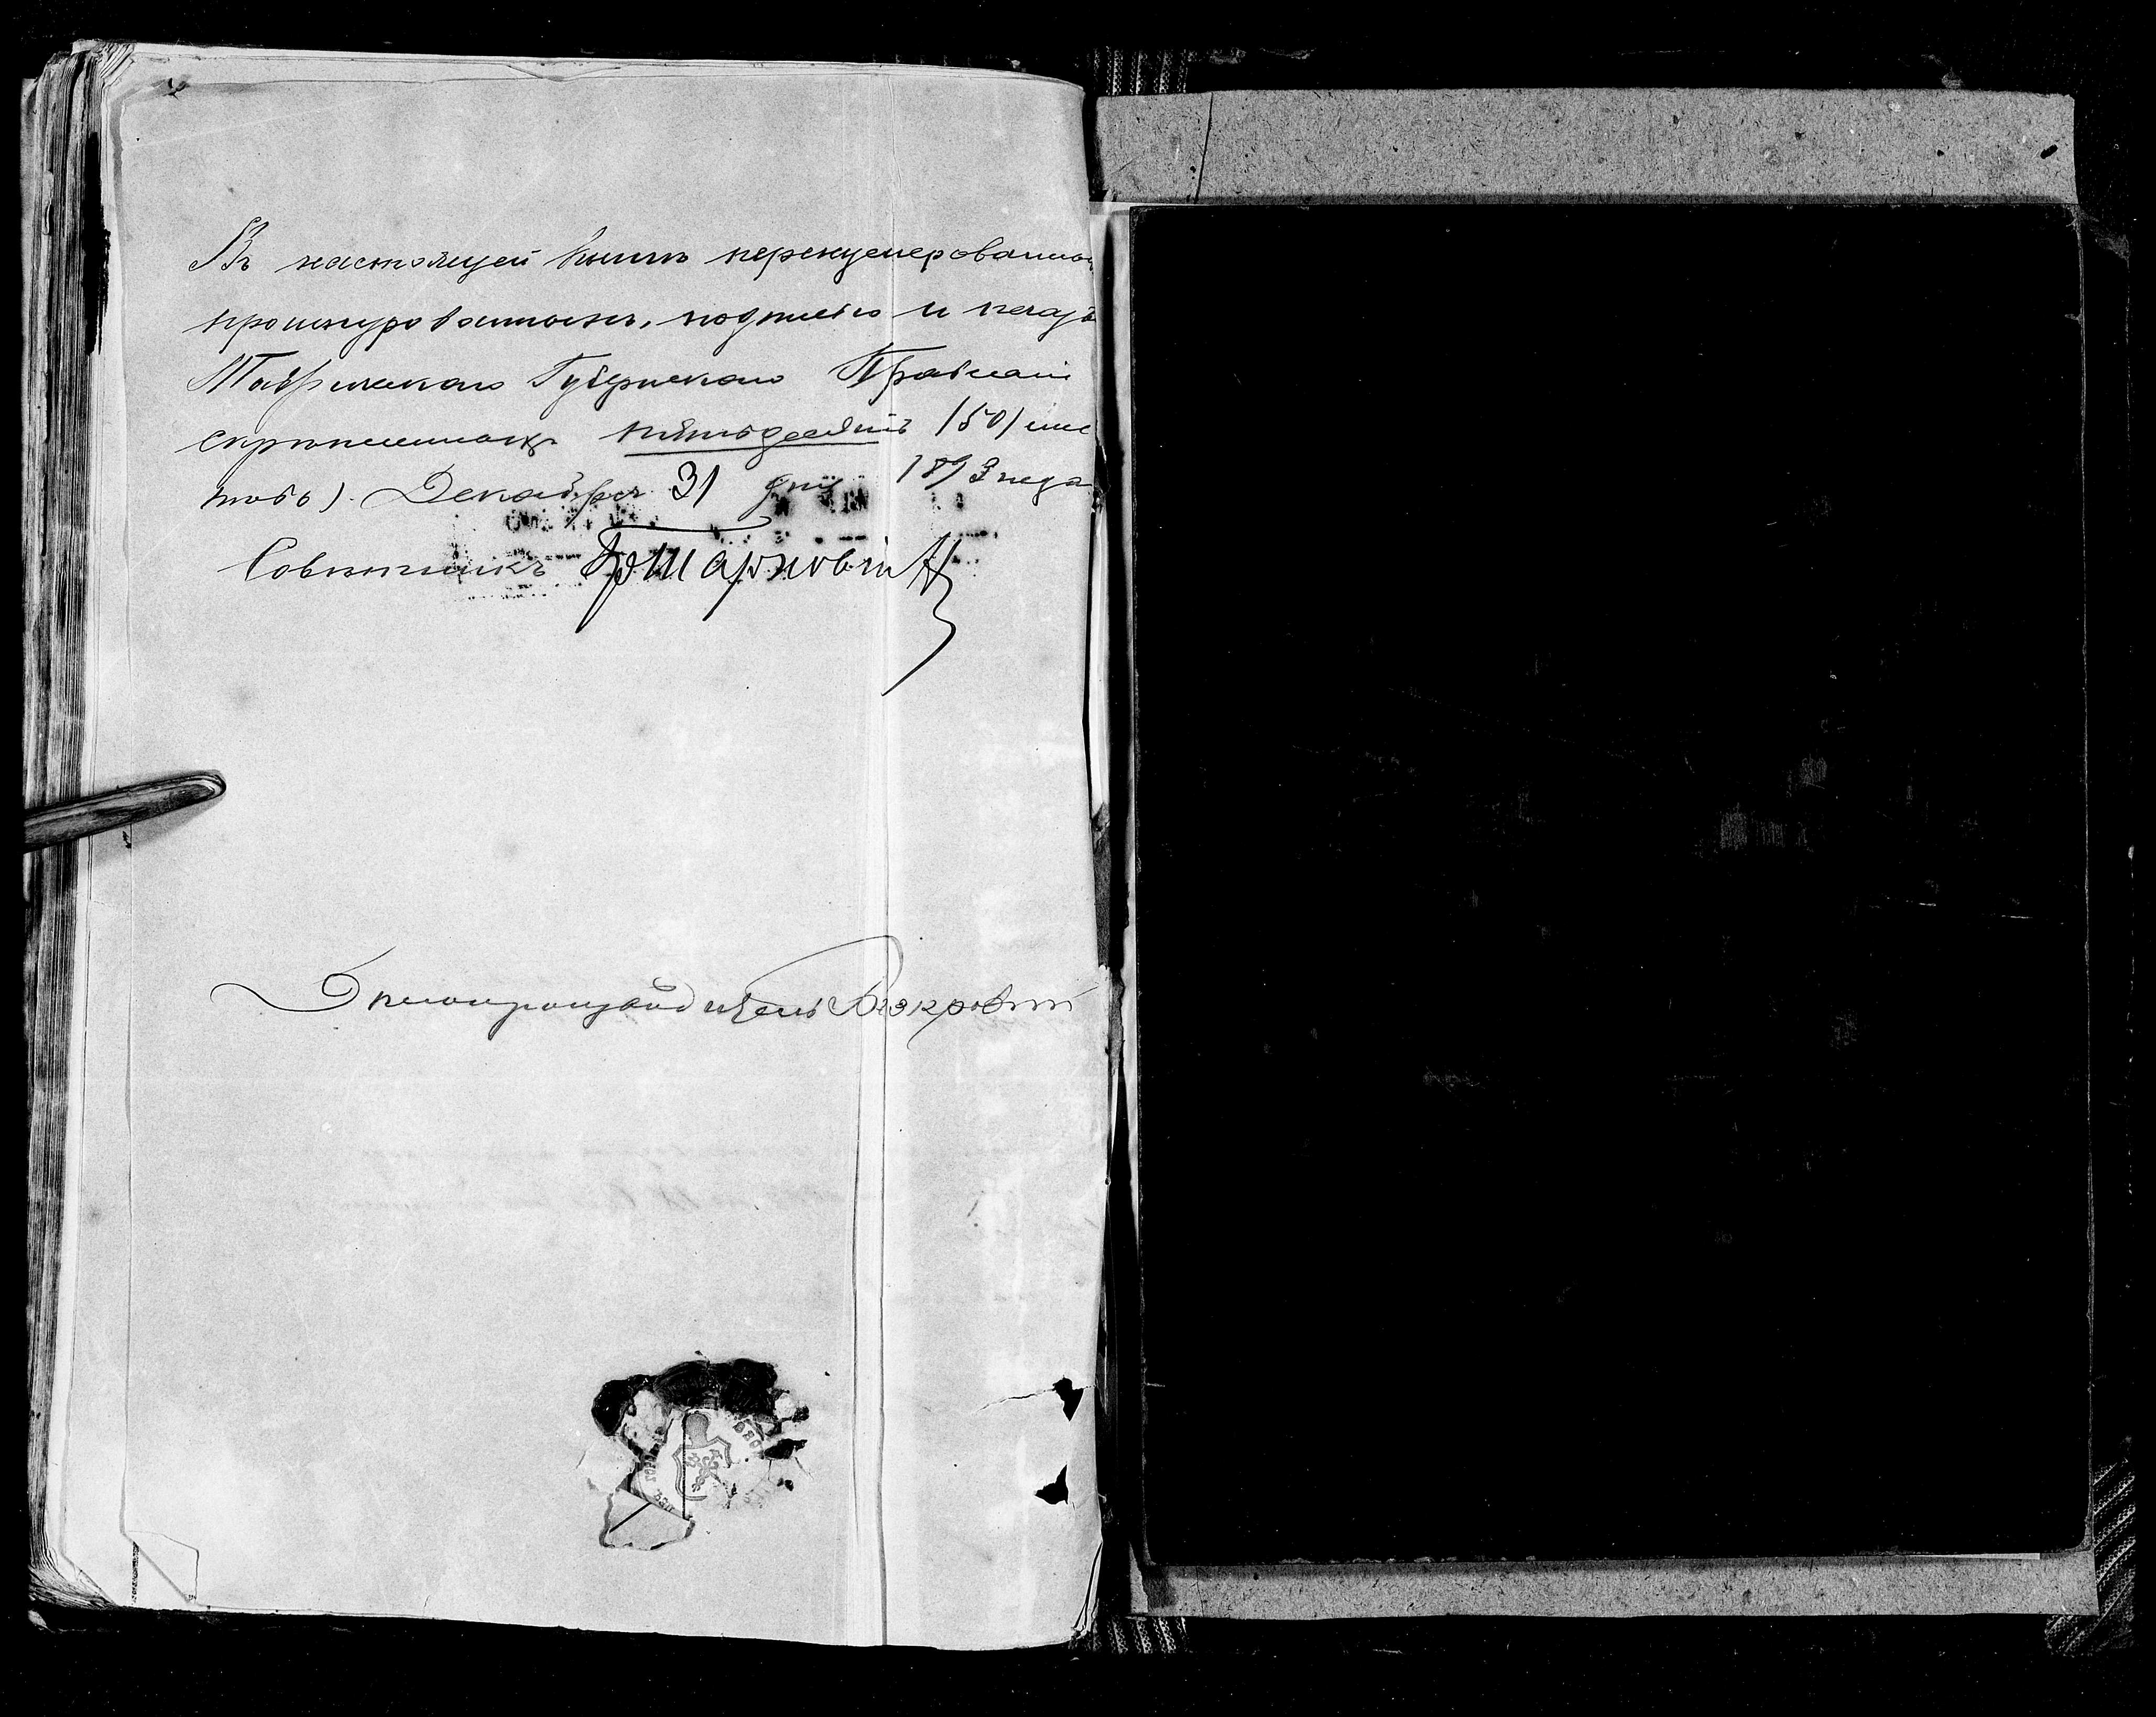 Въ настоящей книгѣ перенумерованныхъ
прошнурованныхъ, подписью и печать
Таврическаго Губернскаго Правлені
скрѣпленныхъ пятьдесятъ /50/ лис
товъ). Декабря 31 дня 1893 года
Совѣтникъ
Дѣлопроизводитель